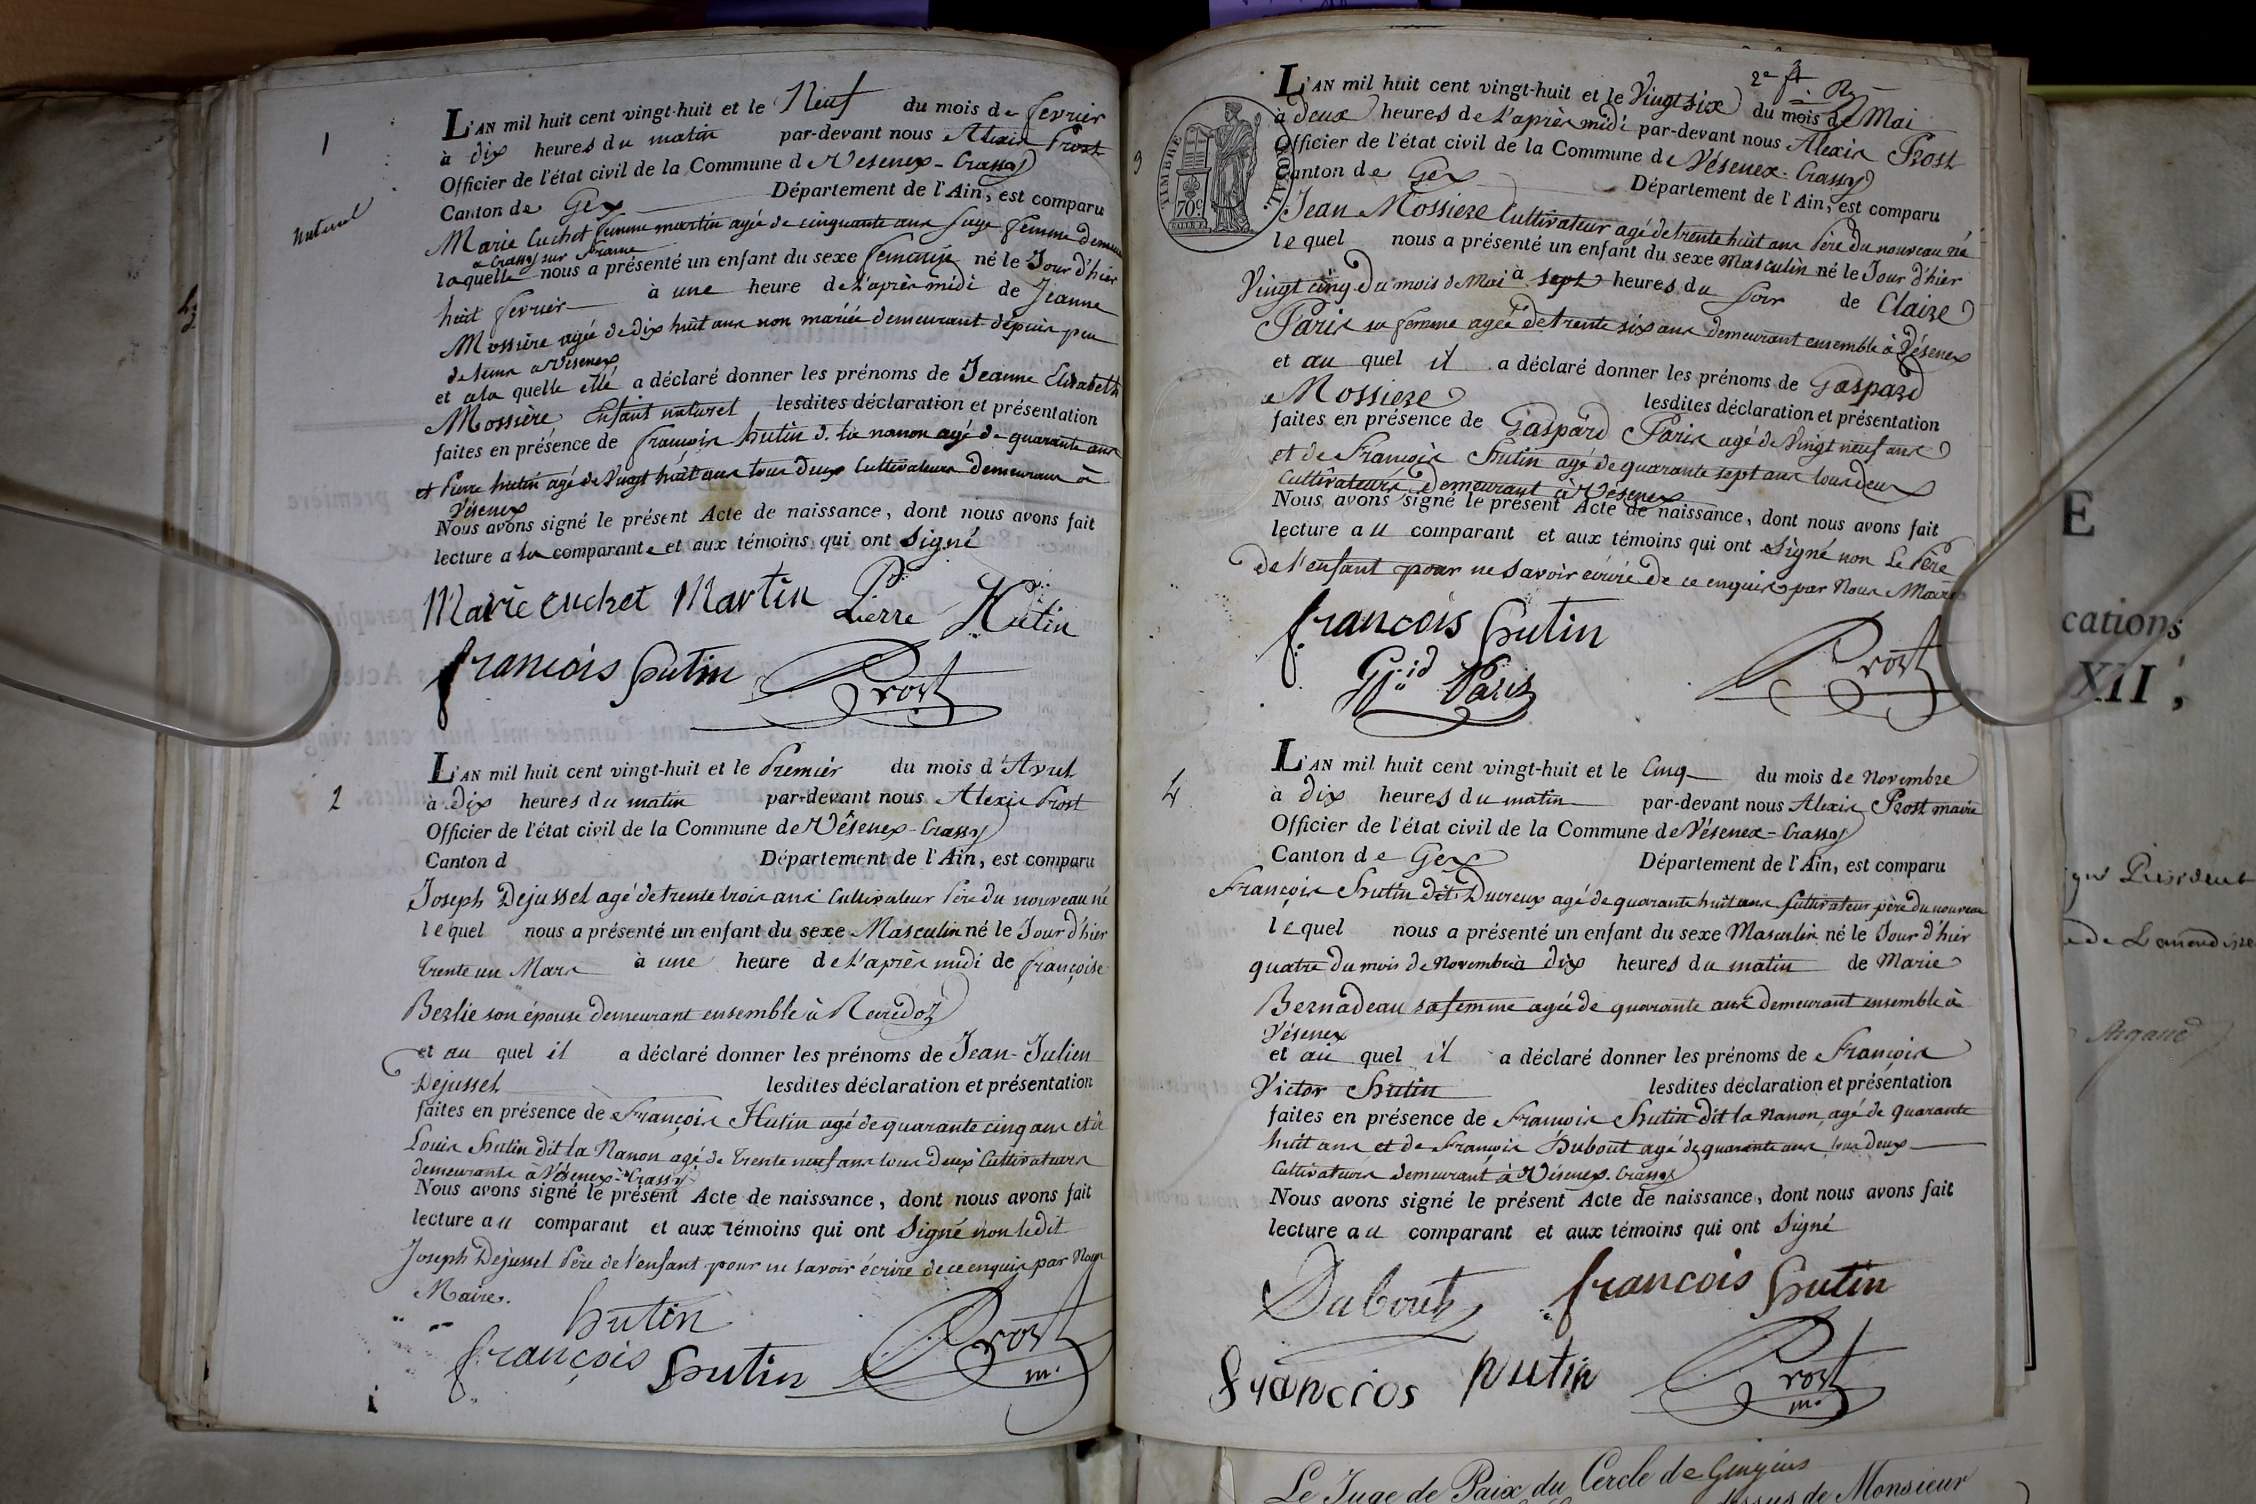 1
naturel
L'AN mil huit cent vingt-huit et le Neuf du mois de fevrier
à dix heures du matin par-devant nous Alexis Prost
Officier de l'état civil de la Commune de Vesenex-Crassy
Canton de Gex Département de l'Ain, est comparu
Marie Cuchet femme martin agée de cinquante ans sage femme
a Crassy sur france
laquelle nous a présenté un enfant du sexe feminin né le Jour d'hier
huit fevrier à une heure de l'après midi de Jeanne
Mossière agée de dix huit ans non mariée demeurant depuis peu
de tems a Vésenex
et à la quelle elle a déclaré donner les prénoms de Jeanne Elisabeth
Mossière Enfant naturel lesdites déclaration et présentation
faites en présence de françois hutin d. la nanon agé de quarante ans
et Pierre hutin agé de Vingt huit ans tous deux Cultivateurs demeurans à
Vésenex
Nous avons signé le présent Acte de naissance, dont nous avons fait
lecture a la comparante et aux témoins qui ont Signé
Marie cuchet Martin Pierre Hutin
françois hutin Prost
2
L'AN mil huit cent vingt-huit et le Premier du mois d'Avril
à dix heures du matin par-devant nous Alexis Prost
Officier de l'état civil de la Commune de Vésenex-Crassy
Canton d Département de l'Ain, est comparu
Joseph Dejussel agé de trente trois ans Cultivateur Père du nouveau né
lequel nous a présenté un enfant du sexe Masculin né le Jour d'hier
Trente un Mars à une heure de l'après midi de françoise
Berlie son épouse demeurant ensemble à
et au quel il a déclaré donner les prénoms de Jean-Julien
Dejussel lesdites déclaration et présentation
faites en présence de François Hutin agé de quarante cinq ans et de
Louis hutin dit la Nanon agé de Trente neuf ans tous deux Cultivateurs
demeurants à Vésenex-Crassy
Nous avons signé le présent Acte de naissance, dont nous avons fait
lecture au comparant et aux témoins qui ont Signé non ledit
Joseph Dejussel Père de l'enfant pour ne savoir écrire de ce enquis par Nous
Maire.
hutin
françois hutin Prost
m.
3
TIMBRE ROYAL
70c
L'AN mil huit cent vingt-huit et le Vingt six du mois de Mai
à deux heures de l'après midi par-devant nous Alexis Prost
Officier de l'état civil de la Commune de Vésenex-Crassy
Canton de Gex Département de l'Ain, est comparu
Jean Mossiere Cultivateur agé de trente huit ans Père du nouveau né
lequel nous a présenté un enfant du sexe Masculin né le Jour d'hier
Vingt cinq du mois de Mai à sept heures du soir de Claire
Paris sa femme agée de trente six ans demeurant ensemble à Vésenex
et au quel il a déclaré donner les prénoms de Gaspard
Mossiere lesdites déclaration et présentation
faites en présence de Gaspard Paris agé de Vingt neuf ans
et de François hutin agé de quarante sept ans tous deux
Cultivateurs demeurant à Vésenex
Nous avons signé le présent Acte de naissance, dont nous avons fait
lecture au comparant et aux témoins qui ont Signé non Le Père
de l'enfant pour ne savoir écrire de ce enquis par Nous Maire
françois hutin
Paris Prost
4
L'AN mil huit cent vingt-huit et le Cinq du mois de novembre
à dix heures du matin par-devant nous Alexis Prost maire
Officier de l'état civil de la Commune de Vésenex-Crassy
Canton de Gex Département de l'Ain, est comparu
François hutin dit Ducreux agé de quarante huit ans Cultivateur père du nouveau
lequel nous a présenté un enfant du sexe Masculin né le Jour d'hier
quatre du mois de Novembre à dix heures du matin de Marie
Bernadeau sa femme agée de quarante ans demeurant ensemble à
Vésenex
et au quel il a déclaré donner les prénoms de François
Victor hutin lesdites déclaration et présentation
faites en présence de François hutin dit la Nanon, agé de quarante
huit ans et de François Dubout agé de quarante ans tous deux
Cultivateurs demeurant à Vésenex-Crassy
Nous avons signé le présent Acte de naissance, dont nous avons fait
lecture au comparant et aux témoins qui ont Signé
Dubout françois hutin
francios hutin Prost
m.
E
cations
XII,
Président
Argand
Le Juge de Paix du Cercle de Gingins
de Monsieur